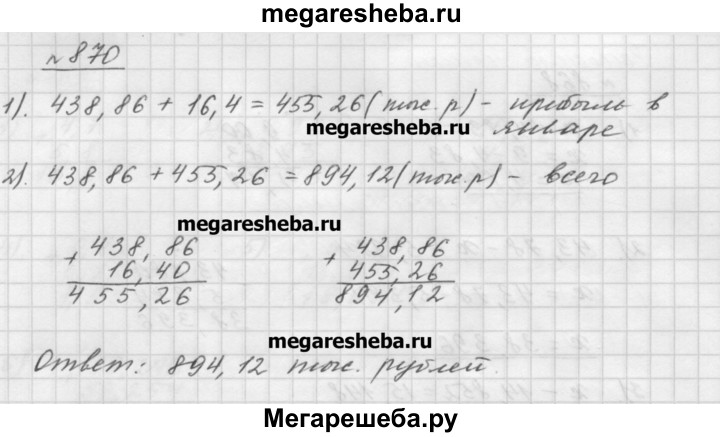 megaresheba.ru
№ 870
1). 438,86 + 16,4 = 455,26 (тыс. р) - прибыль в
megaresheba.ru
январе
2). 438,86 + 455,26 = 894,12 (тыс. р) - всего
megaresheba.ru
+ 438,86 + 438,86
16,40 455,26
455,26 894,12
megaresheba.ru
Ответ: 894,12 тыс. рублей.
Мегарешеба.ру